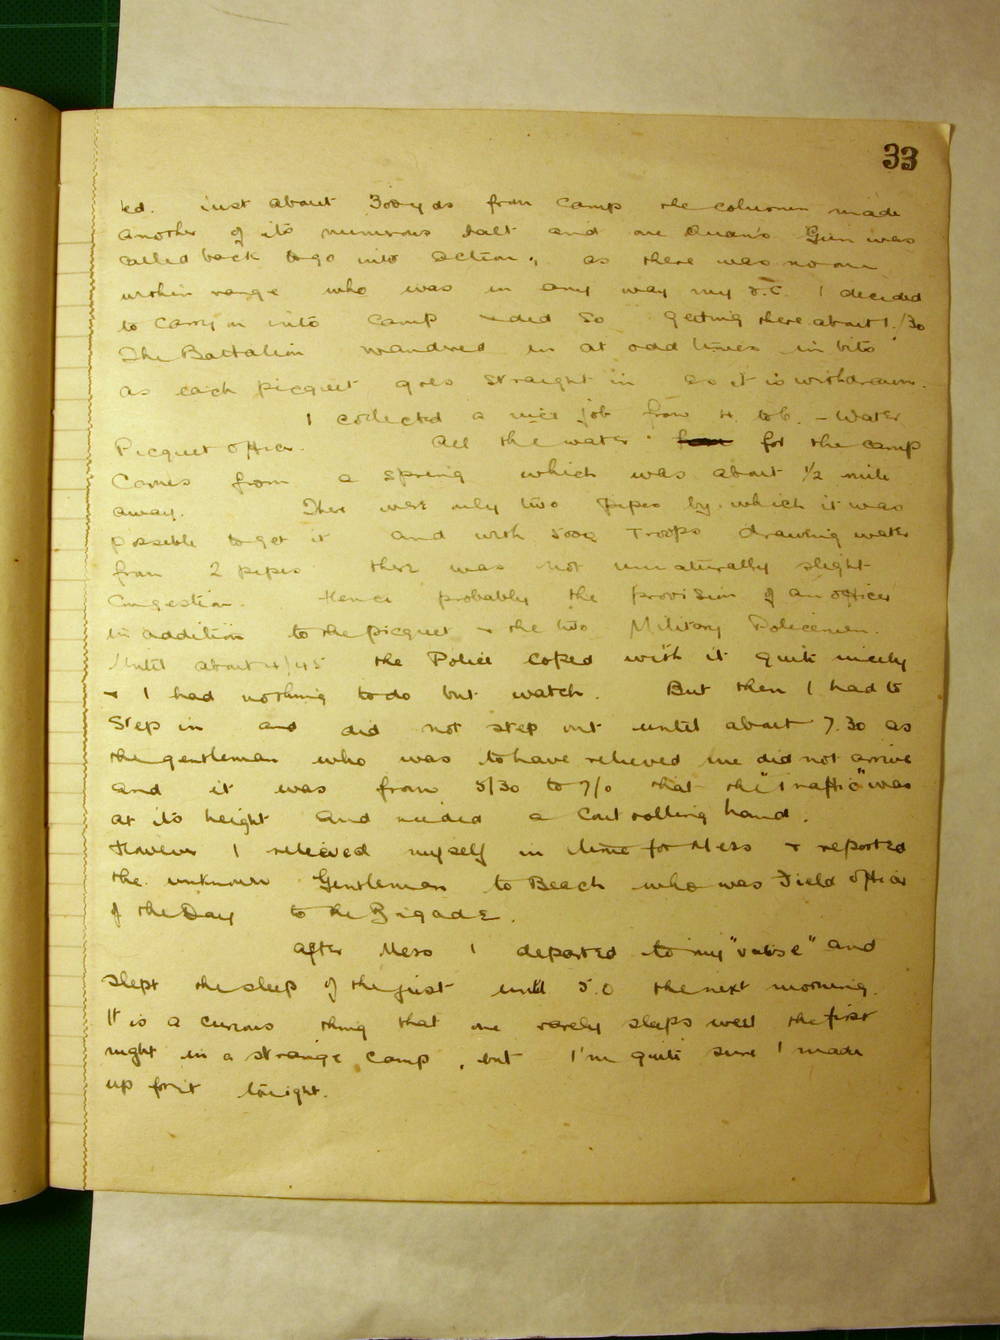 33
'ed. just about 300yds from camp the column made
another of it's numerous halt and one Quan's Gun was
called back to go into action., as there was no one
within range who was in any way my O.C. I decided
to carry on into camp & did so getting there about 1/30
The Battalion wandred in at odd times in bits
as each picquet goes straight in as it is withdrawn.
I collected a nice job from 4. to 6. – Water
Picquet officer. All the water for the camp
Comes from a spring which was about 1/2 mile
away. There were only two pipes by which it was
possible to get it and with 5000 Troops drawing water
from 2 pipes there was not unnaturally slight
Congestion. Hence probably the provision of an officer
in addition to the picquet & the two Military Policemen.
Until about 4/45 the Police coped with it quite nicely
& I had nothing to do but watch. But then I had to
Step in and did not step out until about 7.30 as
the gentleman who was to have relieved me did not arrive
and it was from 5/30 to 7/0 that the "traffic" was
at it's height and needed a Controlling hand.
However I relieved myself in time for Mess & reported
the unknown Gentleman to Beach who was Field officer
of the Day to the Brigade.
After Mess I departed to my "valise" and
slept the sleep of the just until 5.0 the next morning.
It is a curious thing that one rarely sleeps well the first
night in a strange camp, but I'm quite sure I made
up for it tonight.